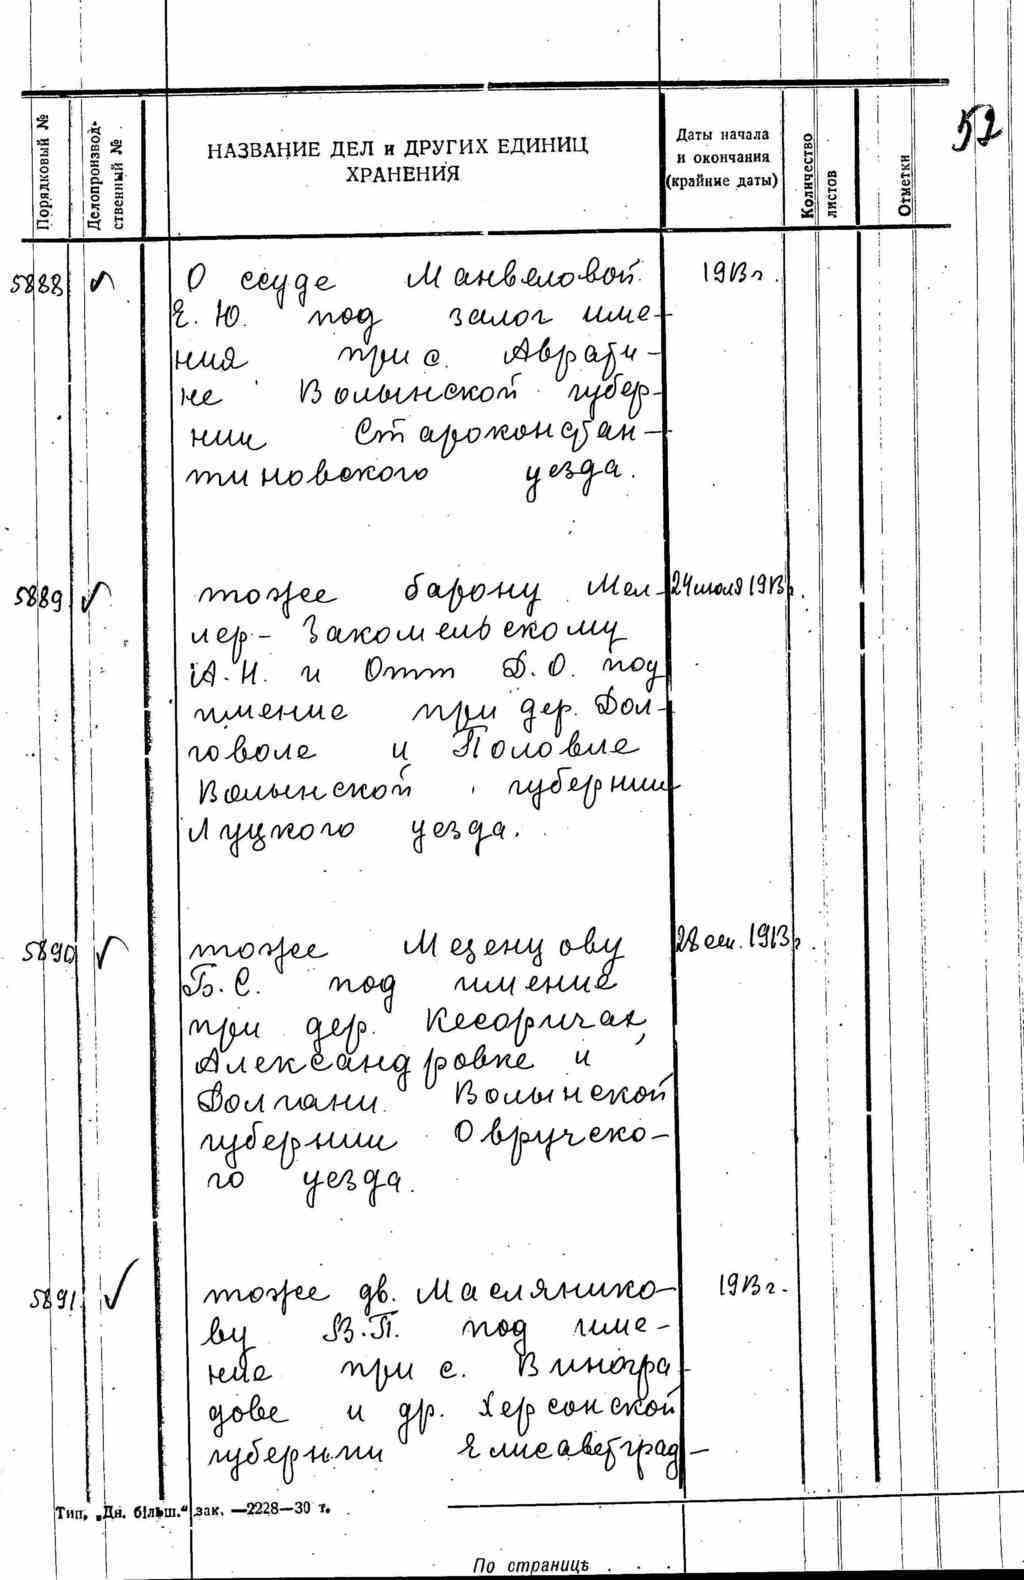 52
Порядковый №
Делопроизвод-
ственный №
НАЗВАНИЕ ДЕЛ и ДРУГИХ ЕДИНИЦ
ХРАНЕНИЯ
Даты начала
и окончания
(крайние даты)
Количество
листов
Отметки
5888 О ссуде Манвеловой 1913 г.
Е. Ю. под залог име-
ния при с. Аврати-
не Волынской губер-
нии Староконстан-
тиновского уезда.
5889 тоже барону Мел- 24 июля 1913 г.
лер-Закомельскому
А. Н. и Отт Д. О. под
имение при дер. Дол-
говоле и Половле
Волынской губернии
Луцкого уезда.
5890 тоже Мезенцову 28 сен. 1913 г.
Б. С. под имение
при дер. Кесоричах,
Александровке и
Долгани Волынской
губернии Овручско-
го уезда.
5891 тоже дв. Маслянико- 1913 г.
ву В. П. под име-
ние при с. Виногра
дове и др. Херсонской
губернии Елисаветград-
Тип. „Дн. більш." зак. —2228—30 т.
По странице . . .